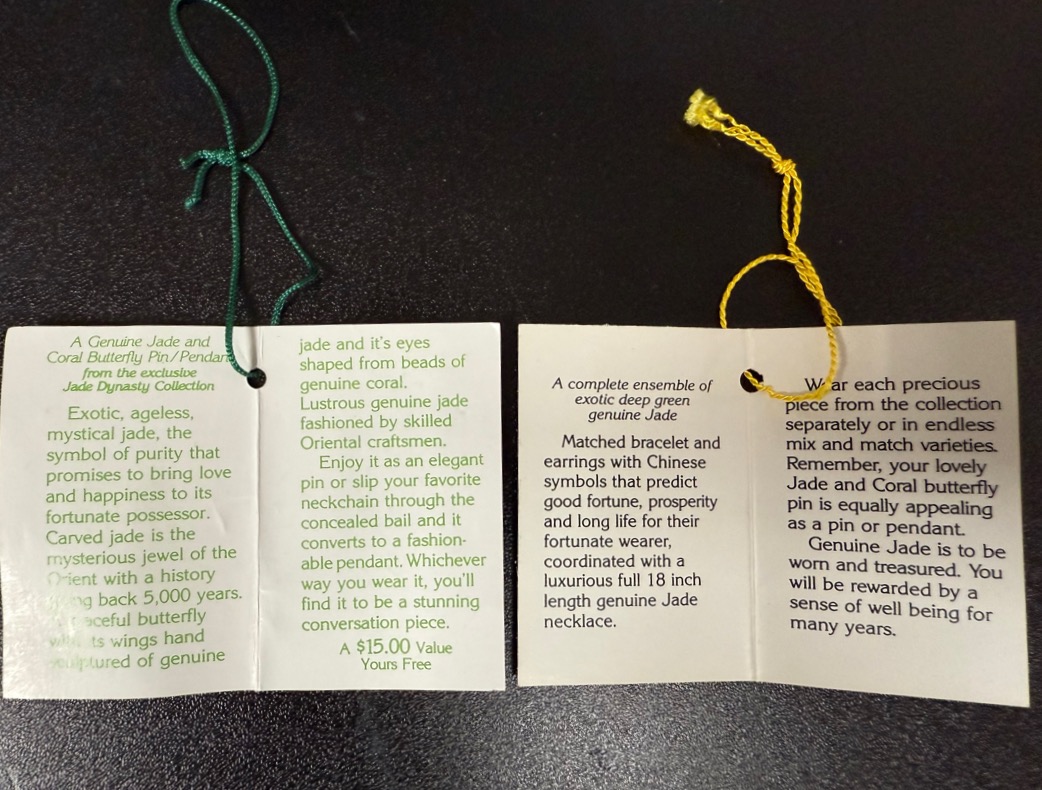 A Genuine Jade and
Coral Butterfly Pin/Pendan
from the exclusive
Jade Dynasty Collection
Exotic, ageless,
mystical jade, the
symbol of purity that
promises to bring love
and happiness to its
fortunate possessor.
Carved jade is the
mysterious jewel of the
Orient with a history
back 5,000 years.
butterfly
its wings hand
sculptured of genuine
jade and it's eyes
shaped from beads of
genuine coral.
Lustrous genuine jade
fashioned by skilled
Oriental craftsmen.
Enjoy it as an elegant
pin or slip your favorite
neckchain through the
concealed bail and it
converts to a fashion-
able pendant. Whichever
way you wear it, you'll
find it to be a stunning
conversation piece.
A $15.00 Value
Yours Free
A complete ensemble of
exotic deep green
genuine Jade
Matched bracelet and
earrings with Chinese
symbols that predict
good fortune, prosperity
and long life for their
fortunate wearer,
coordinated with a
luxurious full 18 inch
length genuine Jade
necklace.
Wear each precious
piece from the collection
separately or in endless
mix and match varieties.
Remember, your lovely
Jade and Coral butterfly
pin is equally appealing
as a pin or pendant.
Genuine Jade is to be
worn and treasured. You
will be rewarded by a
sense of well being for
many years.